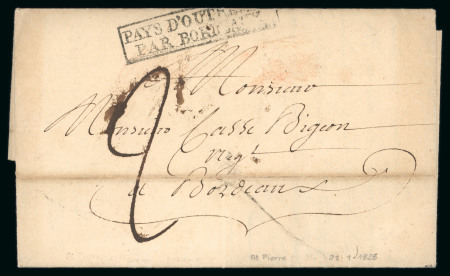 PAYS D'OUTREMER
PAR BORDEAUX
2
Monsieur
Monsieur Casse Bigeon
Negt
a Bordeaux
St Pierre
1 1826